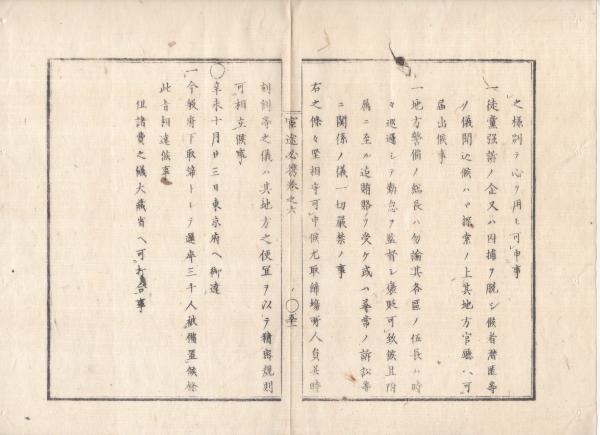 之様別テ心ヲ用ヒ可申事
一徒黨强訴ノ企又ハ囚捕ヲ脱シ候者潜匿等
ノ儀聞込候ハヽ探索ノ上其地方官廳ヘ可
届出候事
一地方警備ノ組長ハ勿論其各區ノ伍長ハ時
々巡邏シテ勤怠ヲ監督シ褒貶可致候且附
属ニ至ル迠賄賂ヲ受ケ或ハ尋常ノ訴訟等
ニ関係ノ儀一切嚴禁ノ事
右之條々堅相守可申候尤取締場所人員其時
憲迠必携巻之六
刻割等之儀ハ其地方之便宜ヲ以テ精密規則
可相立候事
○辛未十月廿三日東京府ヘ御達
一今般府下取締トシテ邏卒三千人被備置候條
此旨相達候事
但諸費之儀大藏省ヘ可打合事